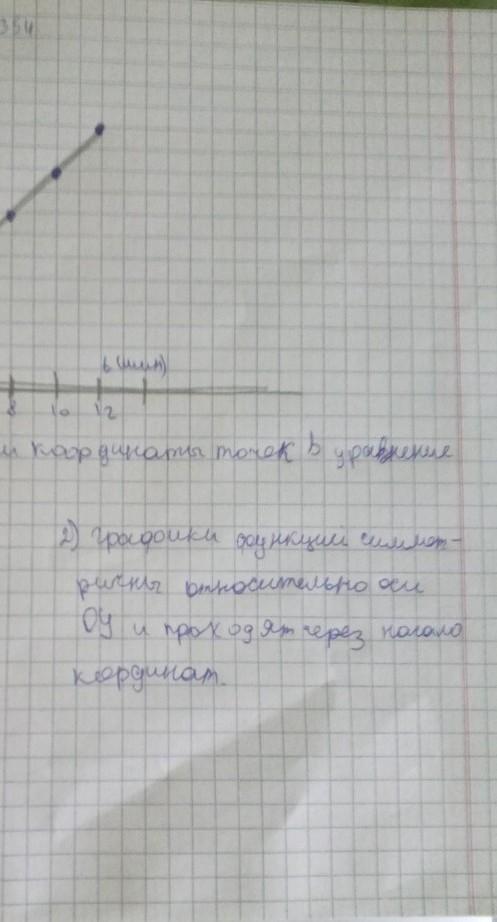 354
t (мин)
8 10 12
и координаты точек в уравнение
2) графики функций симмет-
ричны относительно оси
ОУ и проходят через начало
кординат.